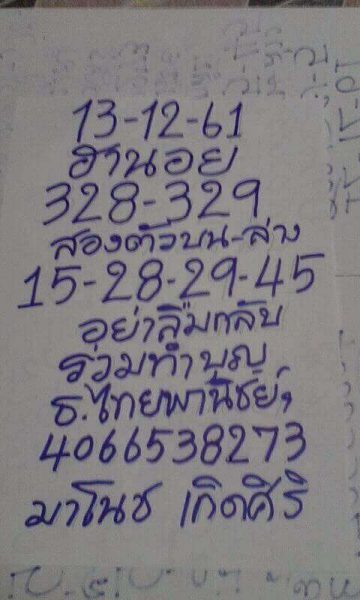 13-12-61
ฮานอย
328-329
สองตัวบน-ล่าง
15-28-29-45
อย่าลืมกลับ
ร่วมทำบุญ
ธ.ไทยพานิชย์,
4066538273
มาโนช เกิดศิริ